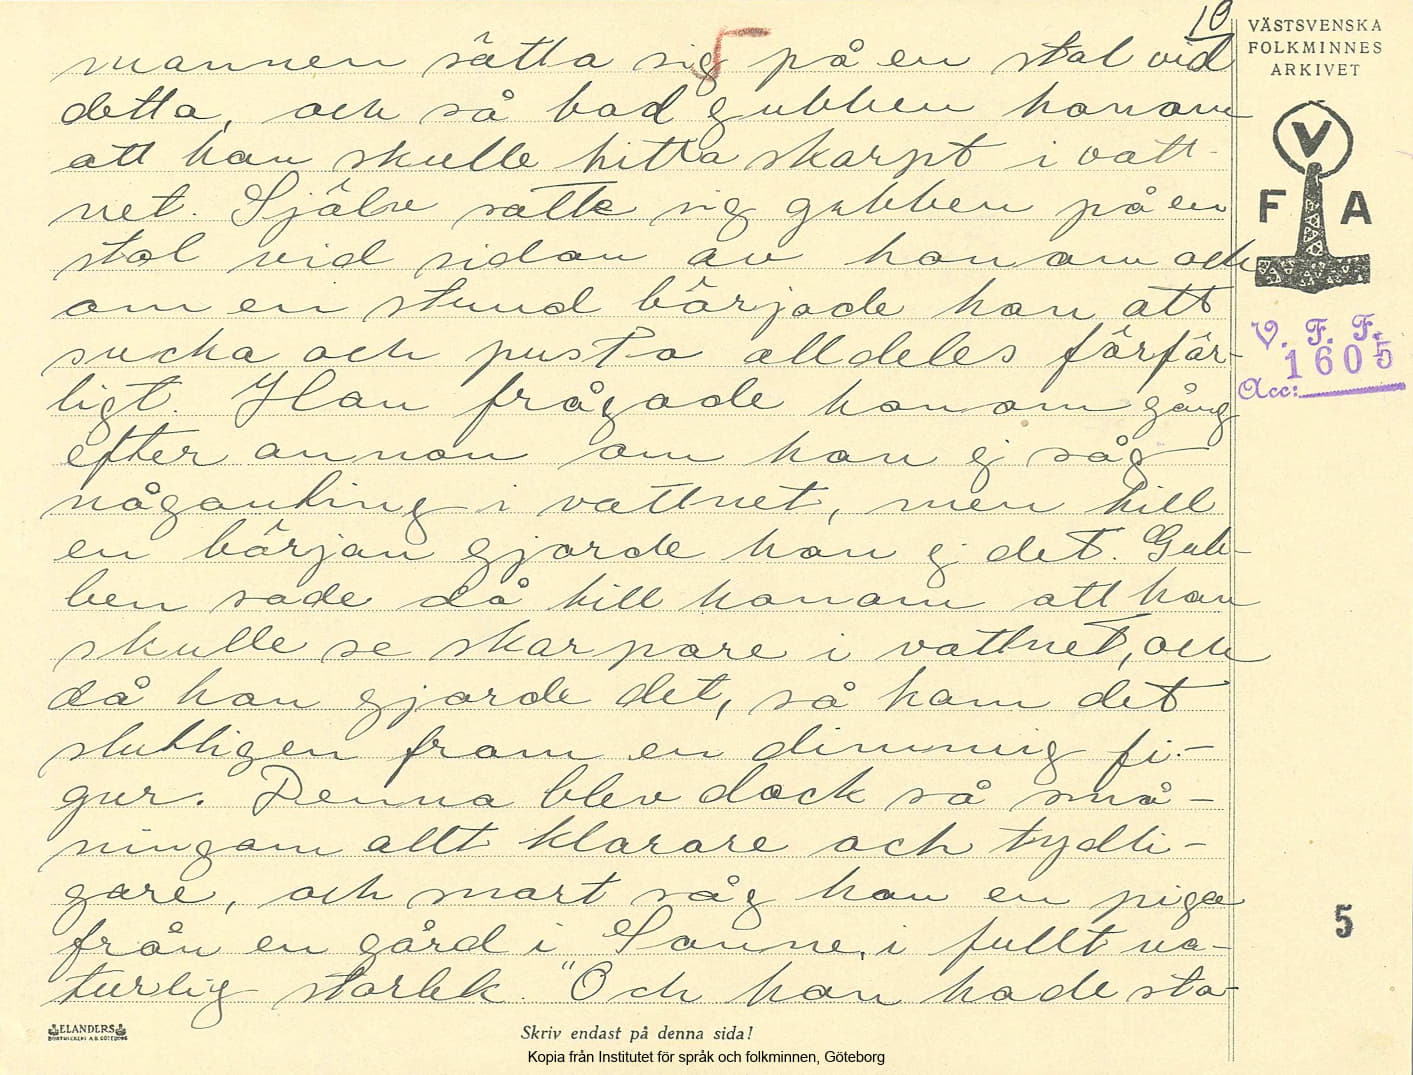 10
mannen sätta sig på en stol vid
detta, och så bad gubben honom
att han skulle titta skarpt i vatt-
net. Själv satte sig gubben på en
stol vid sidan av honom och
om en stund började han att
sucka och pusta alldeles förfär-
ligt. Han frågade honom gång
efter annan om han ej såg
någanting i vattnet, men till
en början gjorde han ej det. Gub-
ben sade då till honom att han
skulle se skarpare i vattnet, och
då han gjorde det, så kom det
slutligen fram en dimmig fi-
gur. Denna blev dock så små-
ningom allt klarare och tydli-
gare, och snart såg han en piga
från en gård i Sanne, i fullt na-
turlig storlek. "Och han hade sta-
VÄSTSVENSKA
FOLKMINNES
ARKIVET
V
F A
V. F. F.
1605
Acc:
5
ELANDERS
BOKTRYCKERI A.B. GÖTEBORG
Skriv endast på denna sida!
Kopia från Institutet för språk och folkminnen, Göteborg